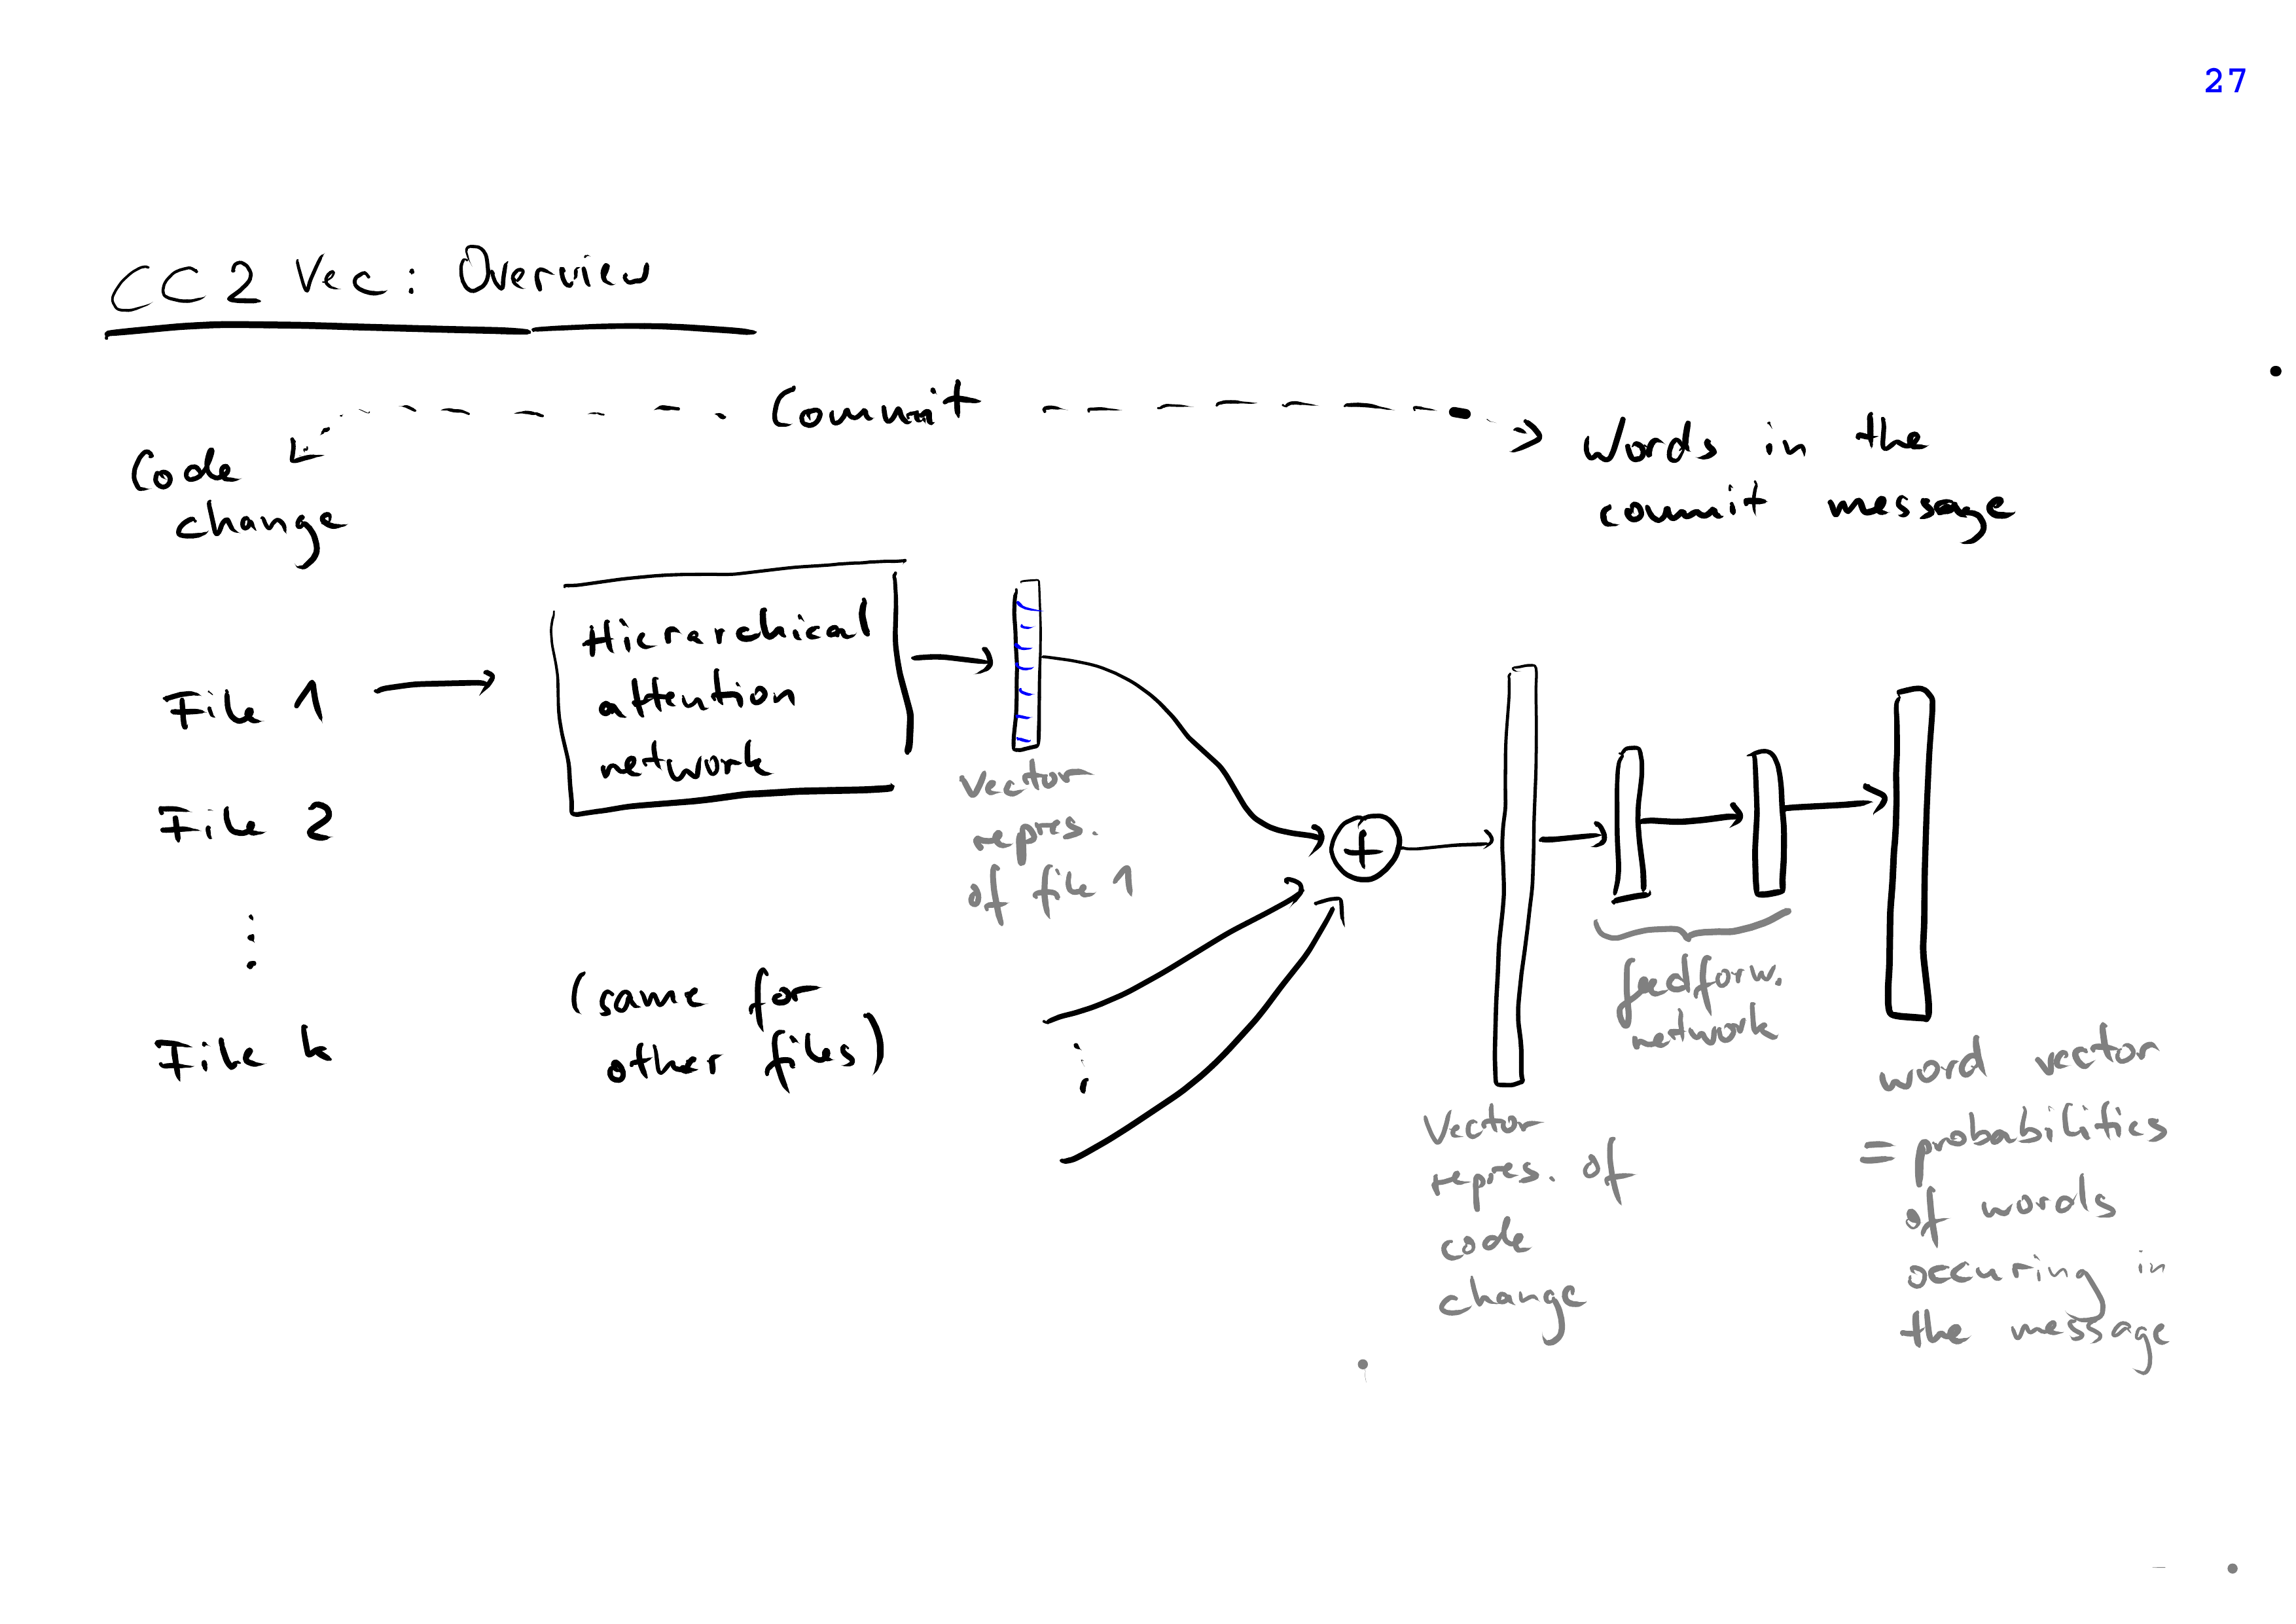 27
CC2Vec: Overview
Commit
Code
change
Words in the
commit message
Hierarchical
attention
network
File 1
File 2
⋮
File k
(same for
other files)
Vector
repres.
of file 1
⋮
+
Vector
repres. of
code
change
feedforw.
network
word vector
= probabilities
of words
occuring in
the message